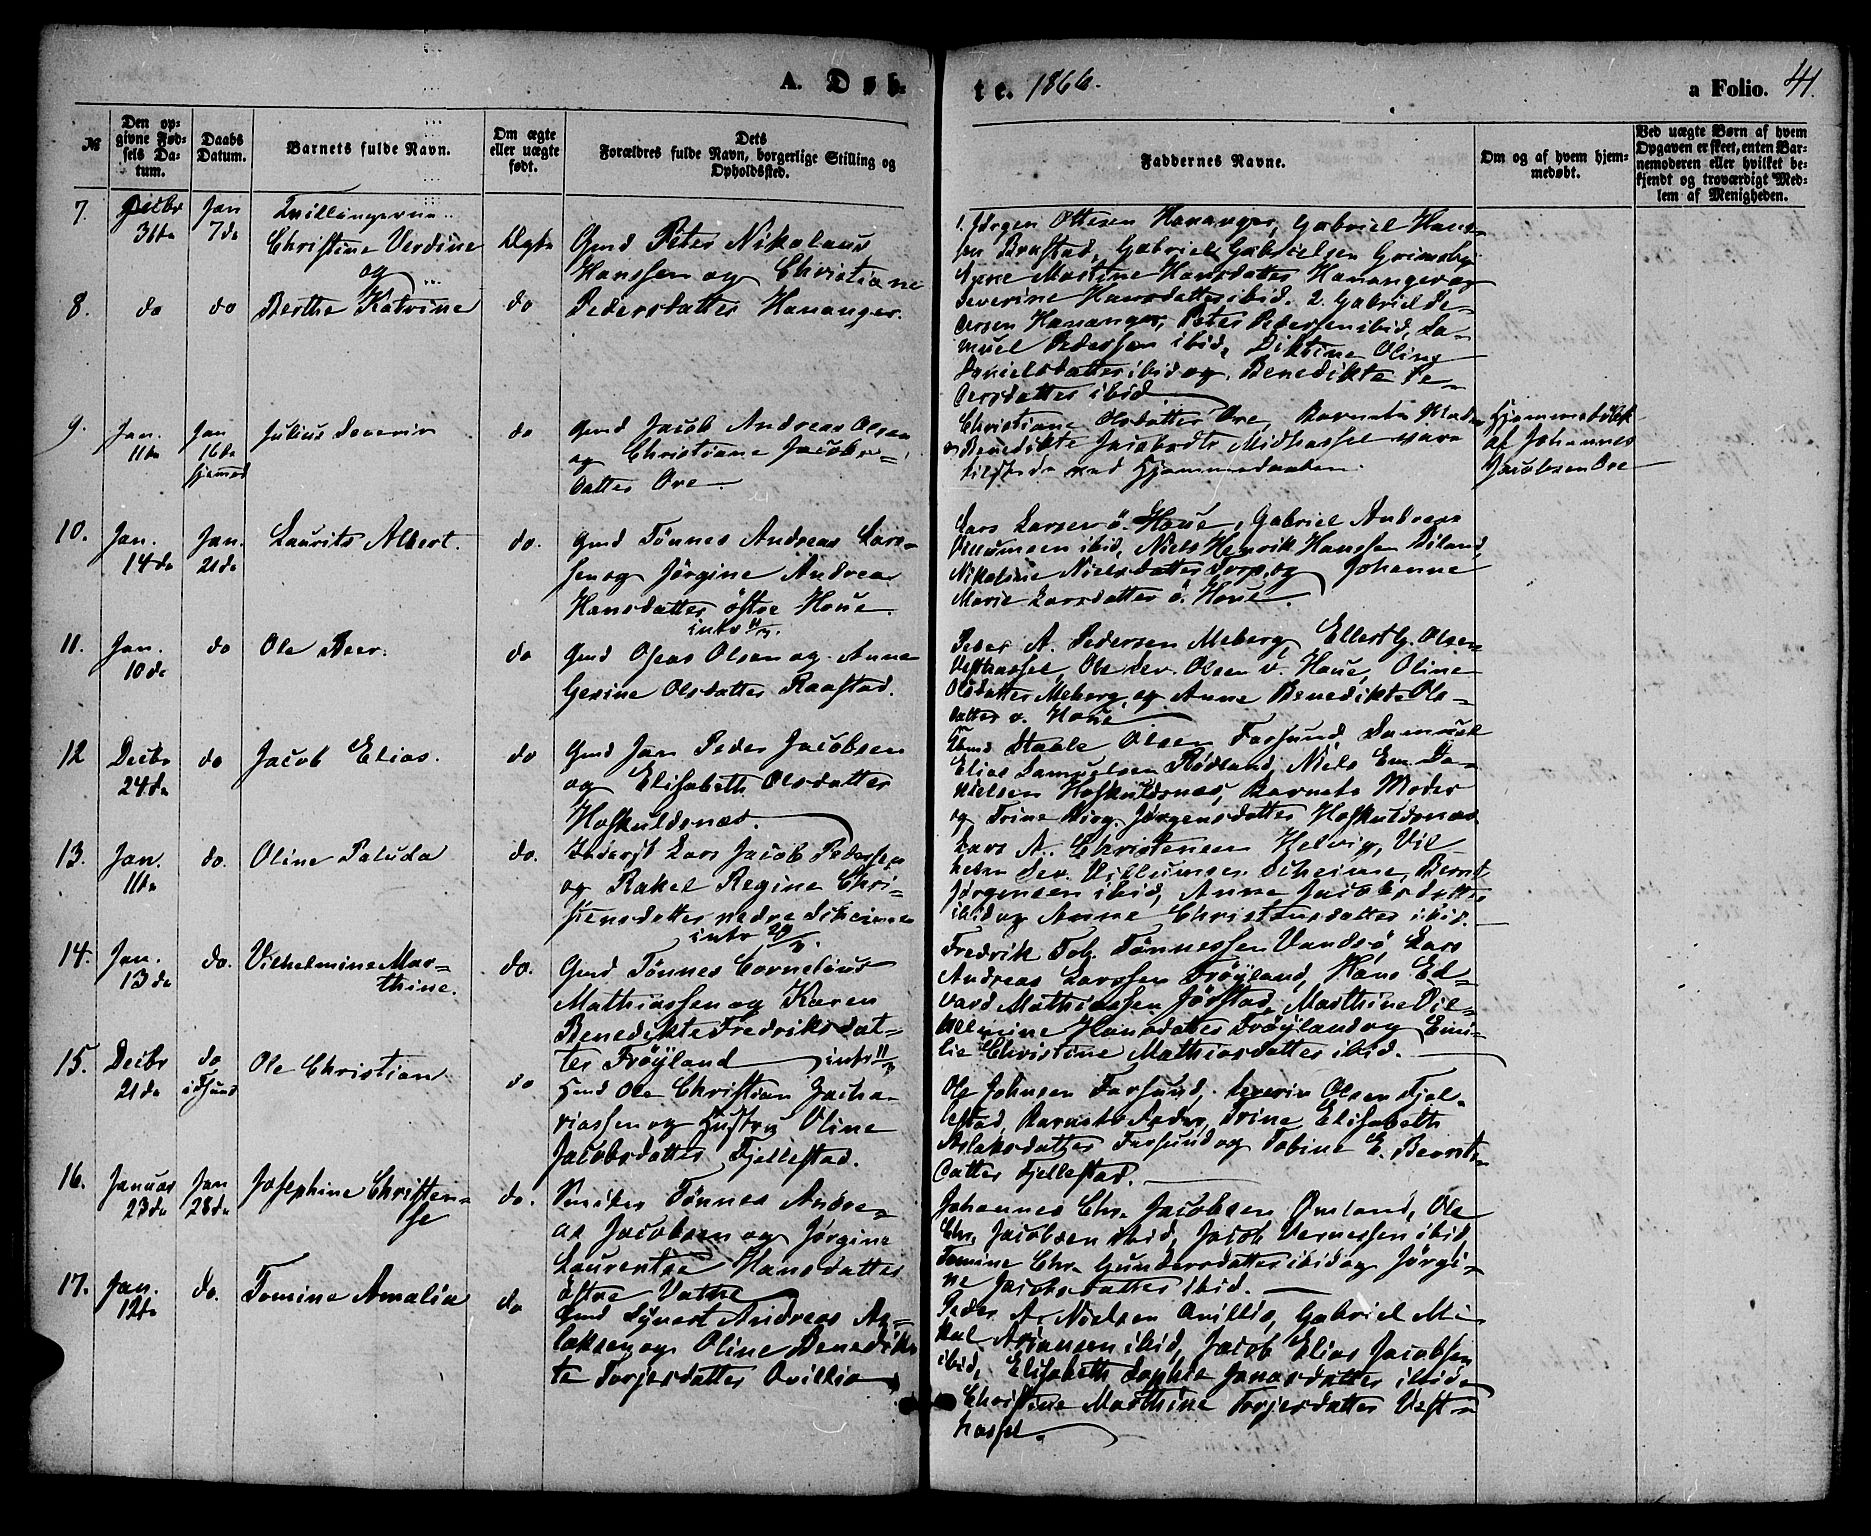 A. Døb-
te. 1866.
a Folio. 41.
№
Den op-
givne Fød-
sels Da-
tum.
Daabs
Datum.
Barnets fulde Navn.
Om ægte
eller uægte
født.
Dets
Forældres fulde Navn, borgerlige Stilling og
Opholdssted.
Faddernes Navne.
Om og af hvem hjem-
medøbt.
Ved uægte Børn af hvem
Opgaven er skeet, enten Bar-
nemoderen eller hvilket be-
kjendt og troværdigt Med-
lem af Menigheden.
7.
Decbr
31te
Jan
7de
Tvillingerne
Christine Verdine
og
Ægte
Gmd Peter Nikolaus
Hanssen og Christiane
1. Jørgen Ottesen Hananger, Gabriel Hans-
sen Brastad, Gabriel Gabrielsen Grimsby
Anne Martine Hansdatter Hananger og
8.
do
do
Berthe Katrine
do
Pedersdatter Hananger.
Severine Hansdatter ibid. 2. Gabriel Pe-
dersen Hananger, Peter Pedersen ibid, Sa-
muel Pedersen ibid, Oline
Danielsdatter ibid og Benedikte Pe-
dersdatter ibid
9.
Jan.
11te
Jan
16de
hjemme
Julius Severin
do
Gmd Jacob Andreas Olsen
og Christiane Jacobs-
datter Ore.
Christiane Olsdatter Ore, Barnets Moder
og Benedikte Jacobsdtr Midthassel vare
tilstede ved Hjemmedaaben.
Hjemmedøbt
af Johannes
Jacobsen Ore
10.
Jan.
14de
Jan.
21de
Laurits Albert.
do.
Gmd Tønnes Andreas Lars-
sen og Jørgine Andrea
Hansdatter østre Houe.
intr 11/3.
Lars Larsen ø. Houe, Gabriel Andreas
ibid, Niels Henrik Hanssen Øiland,
Nikoline Nielsdatter og Johanne
Marie Larsdatter ø. Houe.
11.
Jan.
10de
do
Ole Peer.
do
Gmd Oseas Olsen og Anne
Gesine Olsdatter Raastad.
Peder A. Pedersen Meberg, Ellert G. Olsen
Vesthassel, Ole Sev. Olsen v. Houe, Oline
Olsdatter Meberg og Anne Benedikte Ols-
datter v. Houe
12
Decbr
24de
do
Jacob Elias.
do
Gmd Jan Peder Jacobsen
og Elisabeth Olsdatter
Hoskuldsnæs.
Staale Olsen Farsund, Samuel
Elias Samuelsen Rødland, Niels Em. Da-
nielsen Hoskuldsnæs, Barnets Moder
og Trine Jørgensdatter Hoskuldsnæs
13.
Jan.
11te
do.
Oline Paluda
do.
Inderst Lars Jacob Pedersen
og Rakel Regine Chri-
stensdatter nedre Skeimæ
intr
Lars A. Christensen Helvig, Vil-
helm Sev. Villumsen Scheime, Bernt
Jørgensen ibid, Anne Jacobsdatter
ibid og Anne Christensdatter ibid.
14.
Jan.
13de
do.
Vilhelmine Mar-
thine.
do.
Gmd Tønnes Cornelius
Mathiassen og Karen
Benedikte Fredriksdat-
ter Frøyland intr 11/3
Fredrik Tob. Tønnessen Vandsø, Lars
Andreas Larssen Frøyland, Hans Ed-
vard Mathiassen Jørstad, Marthine Vil-
helmine Hansdatter Frøyland og Emi-
lie Christine Mathiasdatter ibid.
15.
Decbr
21de
do
Ole Christian
do
Hmd Ole Christian Zacha-
riassen og Hustru Oline
Jacobsdatter Fjellestad.
Ole Johnsen Farsund, Severin Olsen Fjel-
lestad, Barnets Fader, Trine Elisabeth
Aslaksdatter Farsund og Tobine E. Berents-
datter Fjellestad.
16.
Januar
23de
Jan
28de
Josephine Christen-
se
do.
Tønnes Andre-
as Jacobsen og Jørgine
Laurentse Hansdatter
østre Vatne
Johannes Chr. Jacobsen Omland, Ole
Chr. Jacobsen ibid, Jacob Vernessen ibid,
Tomine Chr. Gundersdatter ibid og Jørgi-
ne Jacobsdatter ibid.
17.
Jan.
12te
do.
Tomine Amalia
do
Gmd Syvert Andreas As-
laksen og Oline Benedik-
te Torjersdatter Qvillio
Peder A. Nielsen Qvillio, Gabriel Mi-
kal ibid, Jacob Elias Jacobsen
ibid, Elisabeth Sophie Jonasdatter ibid og
Christine Marthine Torjersdatter Vest-
hassel.